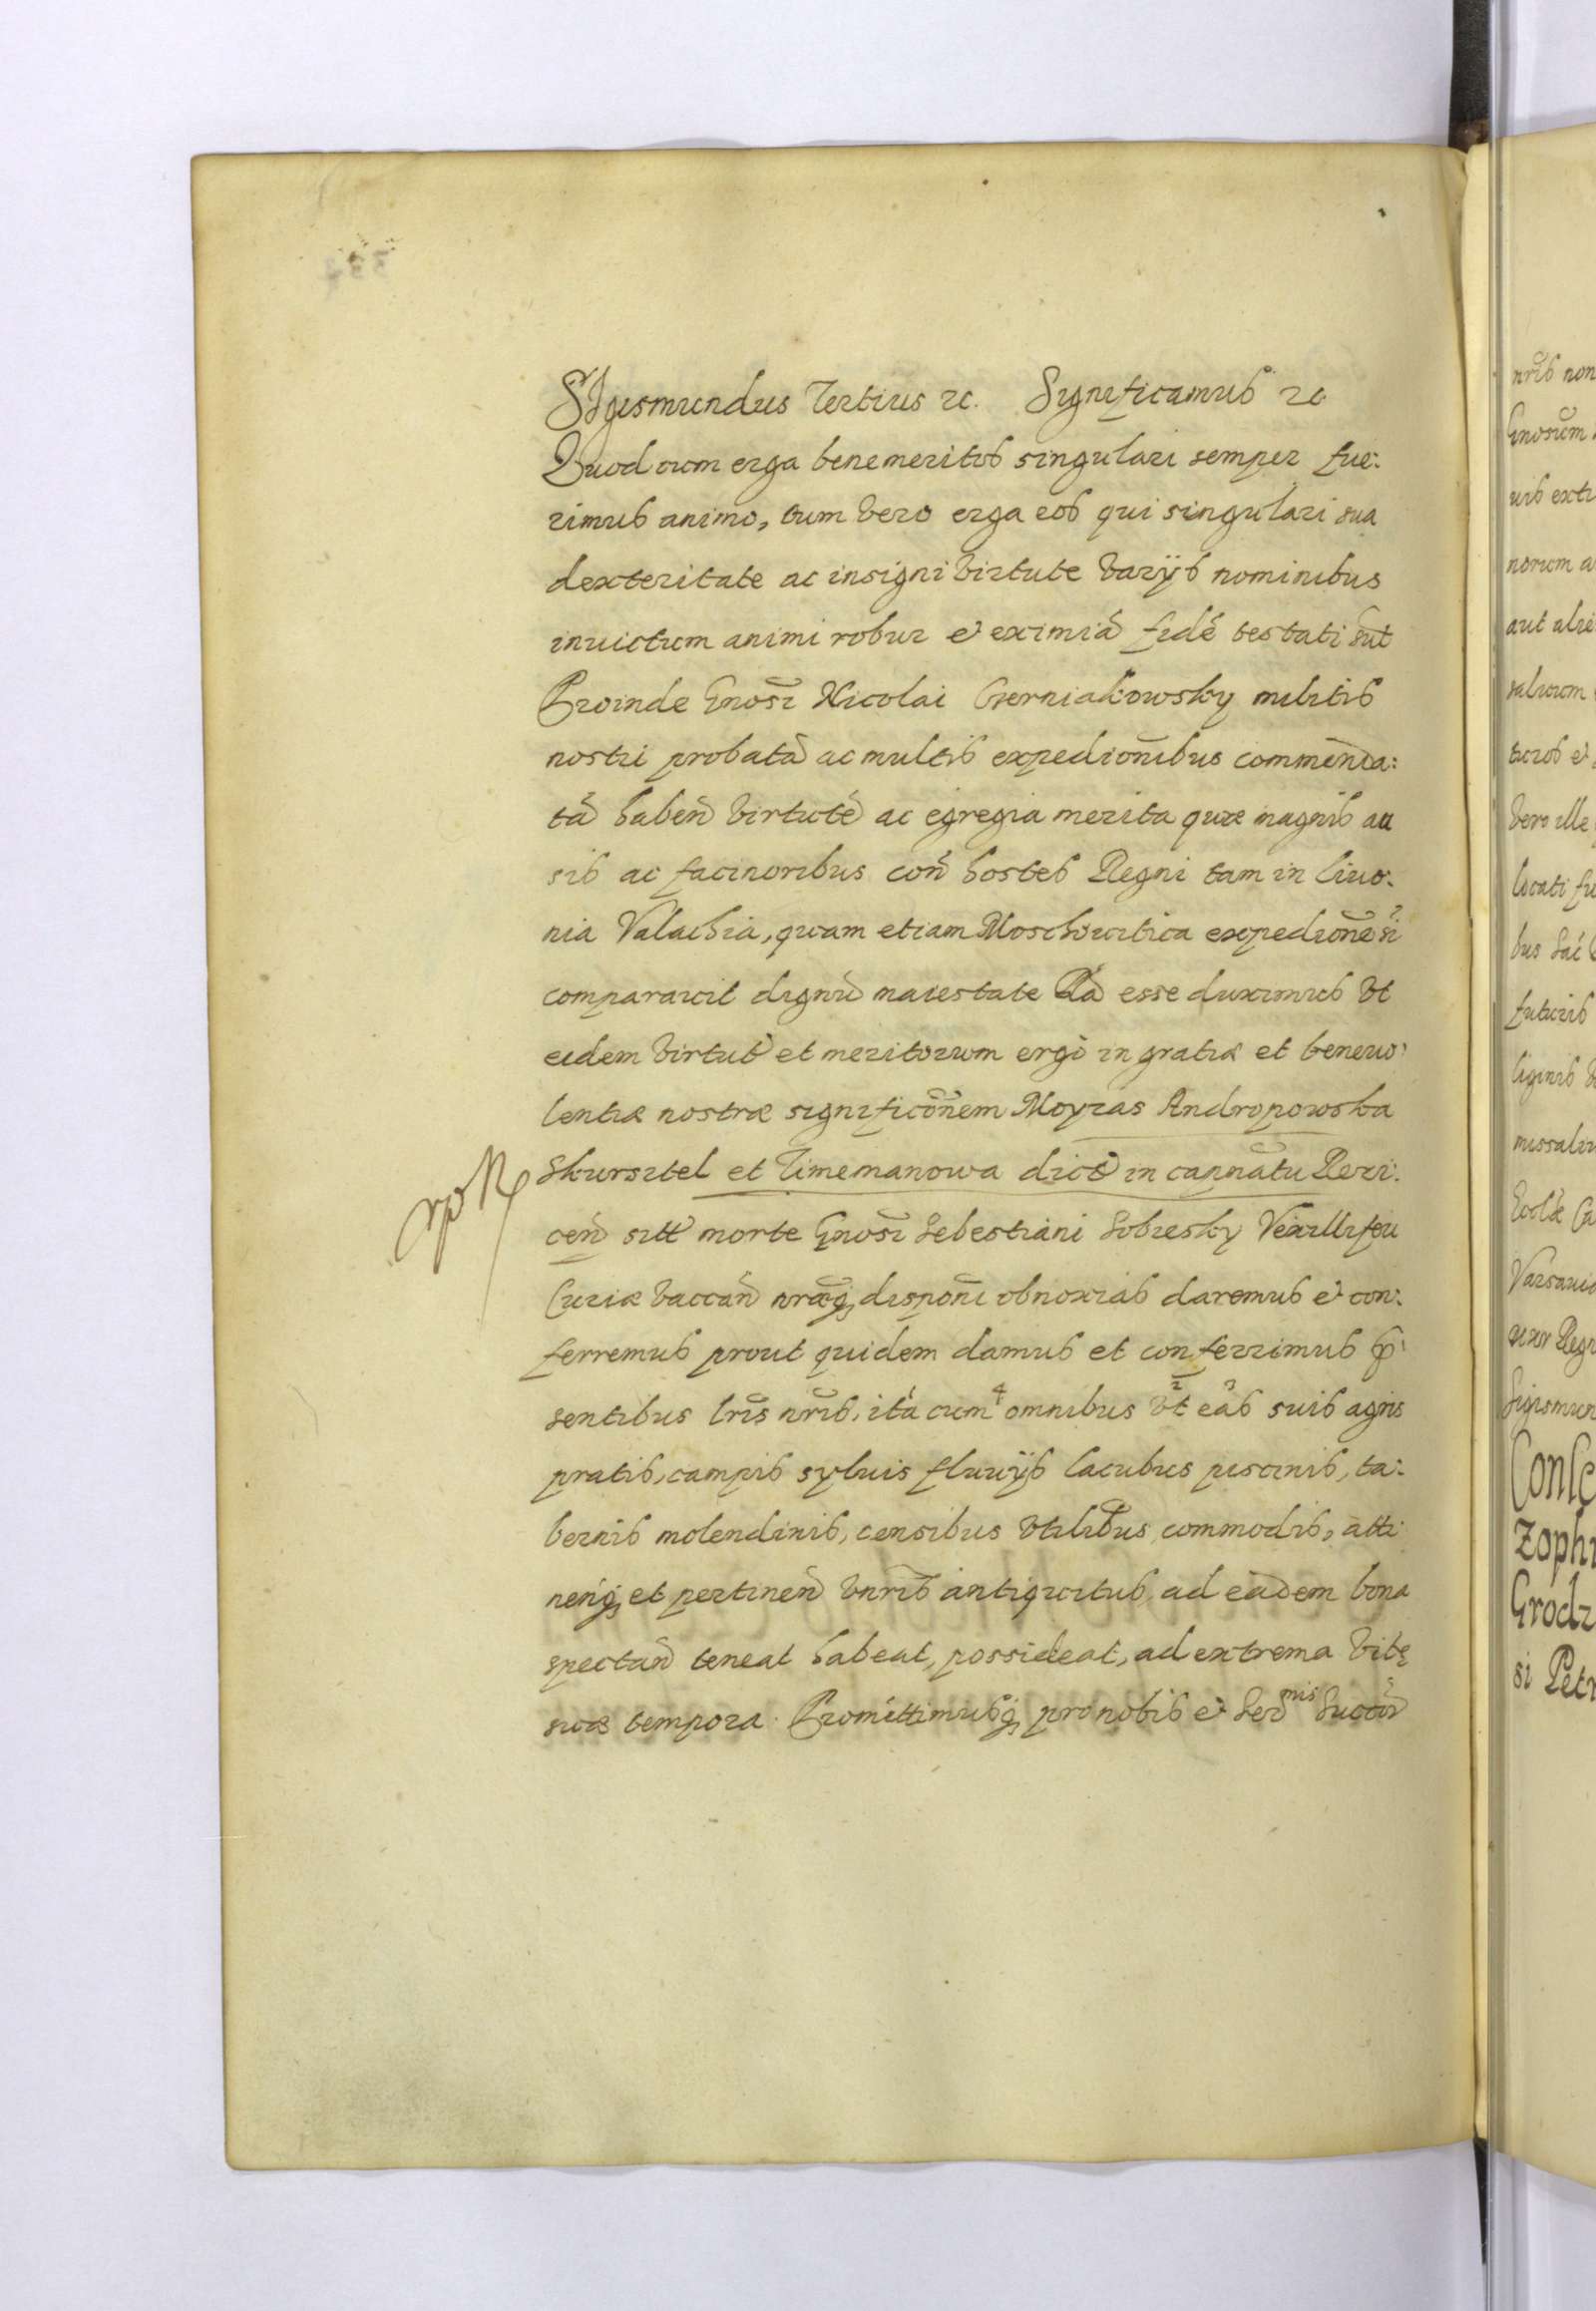 SIgismundus Tertius etc. Significamus etc
Quod cum erga benemeritos singulari semper fue:
rimus animo, tum vero erga eos qui singulari sua
dexteritate ac insigni virtute varÿs nominibus
inuictum animi robur et eximiã fidẽ testati sũt
Proinde Gnosi Nicolai Czerniakowsky militis
nostri probatã ac multis expedionibus commenda:
tã habeñ virtutẽ ac egregia merita quæ magnis au
sis ac facinoribus coñ hostes Regni tam in Liuo:
nia Valachia, quam etiam Moschouitica expedione si
comparauit dignũ maiestate Rã esse duximus vt
eidem virtut et meritorum ergò in gratiæ et beneuo:
lentiæ nostræ significonem Moyzas Andropowska
Skursitel et Timemanowa dict in capnatu Rezi:
ceñ sitt morte Gnosi Sebestiani Sobiesky Vexilliferi
Curiæ vaccañ nræq disponi obnoxias daremus et con:
ferremus prout quidem damus et conferrimus p
sentibus lris nris, ità cum 4 omnibus 2 vt 3 eas suis agris
pratis, campis syluis fluuÿs lacubus piscinis, ta:
bernis molendinis, censibus vtilibus commodis, atti
neñq et pertineñ vnris antiquitus ad eadem bona
spectañ teneat habeat, possideat, ad extrema vitę
suæ tempora. Promittimusq pro nobis et Ser mis Succor